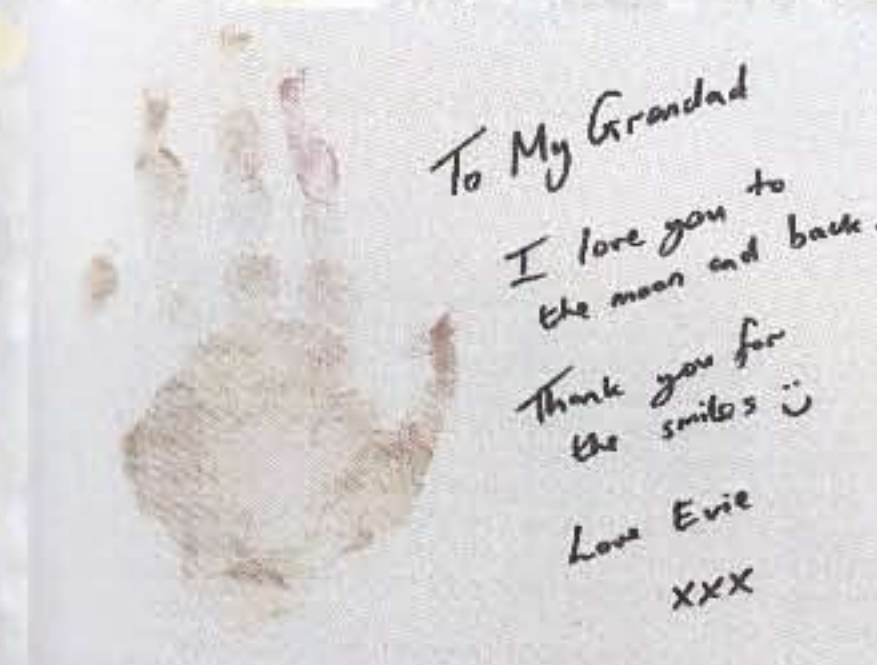 To My Grandad
I love you to
the moon and back.
Thank you for
the smiles :)
Love Evie
xxx